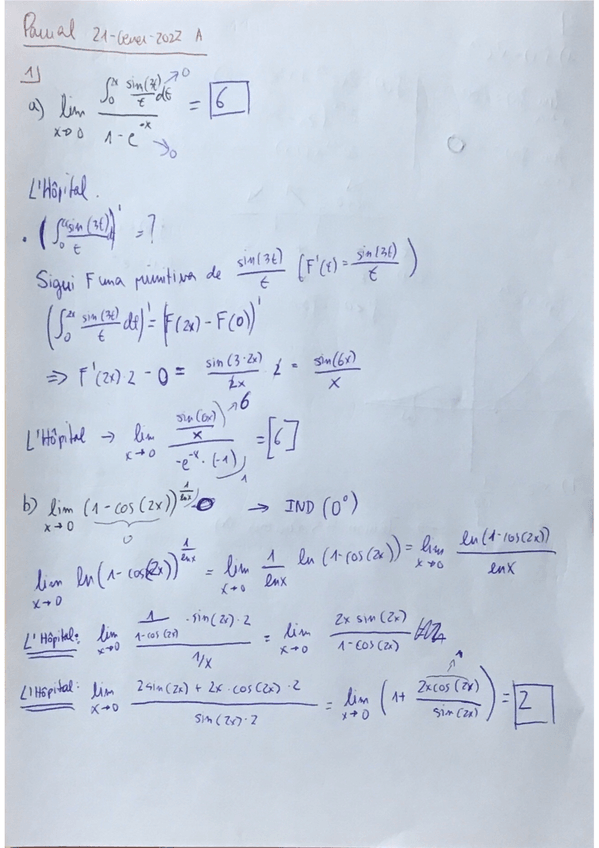 Parcial 21-Gener-2022 A
1)
a) lim x→0 ∫₀²ˣ sin(3t)/t dt →0 / 1-e⁻ˣ →0 = 6
L'Hôpital.
• (∫₀²ˣ sin(3t)/t)' = ?
Sigui F una primitiva de sin(3t)/t (F'(t) = sin(3t)/t)
(∫₀²ˣ sin(3t)/t dt)' = (F(2x) - F(0))'
⇒ F'(2x) 2 - 0 = sin(3·2x)/2x 2 = sin(6x)/x
L'Hôpital → lim x→0 sin(6x)/x →6 / -e⁻ˣ·(-1) 1 = [6]
b) lim x→0 (1-cos(2x))^(1/lnx) 0 0 → IND (0⁰)
lim x→0 ln(1-cos(2x))^(1/lnx) = lim x→0 1/lnx ln(1-cos(2x)) = lim x→0 ln(1-cos(2x))/lnx
L'Hôpital: lim x→0 1/(1-cos(2x)) · sin(2x)·2 / 1/x = lim x→0 2x sin(2x)/1-cos(2x)
L'Hôpital: lim x→0 2sin(2x) + 2x·cos(2x)·2 / sin(2x)·2 = lim x→0 (1 + 2xcos(2x)/sin(2x)) →1 = 2